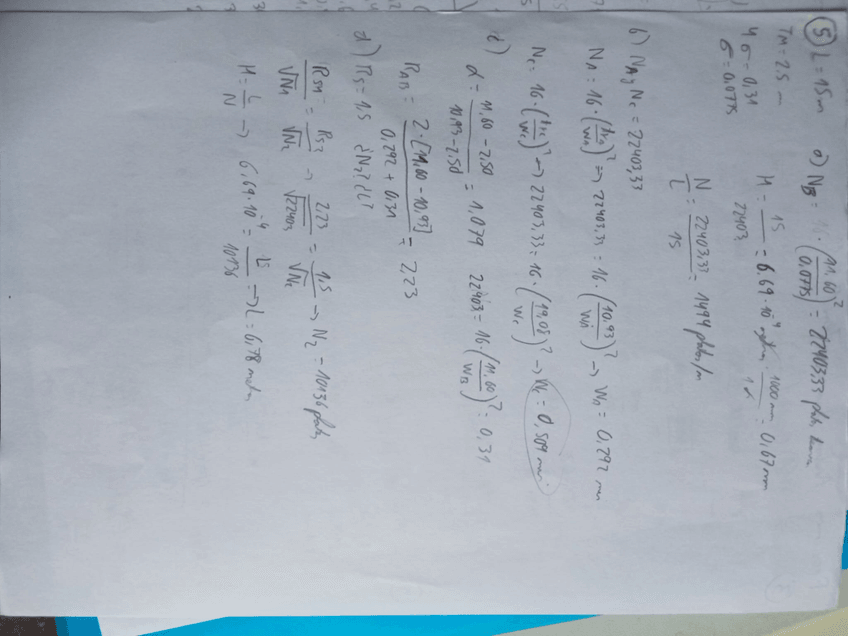 5) L = 15 m a) N_B = · (11,60 / 0,0775)² = 22403,33
TM = 2,5 m
4σ = 0,31 H = 15 / 22403, = 6,69·10⁻⁴ · 1000 mm / 1 = 0,67 mm
σ = 0,0775
N / L = 22403,33 / 15 = 1494 /m
b) N_A; N_C = 22403,33
N_A = 16·( / W_A)² => 22403,33 = 16·(10,93 / W_A)² → W_A = 0,292 m
N_C = 16·( / W_C)² → 22403,33 = 16·( / W_C)² → = 0,509 m
c) α = 11,60 - 2,50 / 10,93 - 2,50 = 1,079 22403 = 16·(11,60 / W_B)² = 0,31
R_AB = 2·[11,60 - 10,93] / 0,292 + 0,31 = 2,23
d) R_S = 1,5 ¿N₂? ¿L?
R_S1 / √N_1 = R_S2 / √N_2 → 2,23 / √22403 = 1,5 / √N_2 → N_2 = 10136
H = L / N → 6,69·10⁻⁴ = L / 10136 => L = 6,78